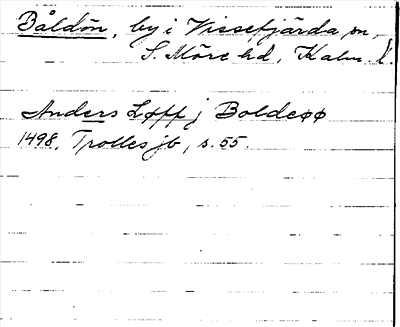 Båldön, by i Vissefjärda sn,
S. Möre hd, Kalm. l.
Anders Løff j Boldeøø
1498, Trolles jb, s. 55.